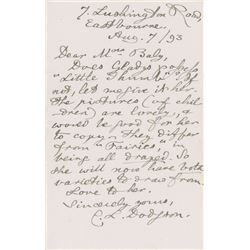 7. Lushington Road,
Eastbourne.
Aug. 7/93
Dear Mrs Baly,
Does Gladys possess
"Little Thumb"? If
not, let me give it her.
The pictures (of chil-
dren) are lovely, &
would be good for her
to copy. They differ
from "Fairies" in
being all draped. So
she will now have both
varieties to draw from.
Love to her.
Sincerely yours,
C. L. Dodgson.